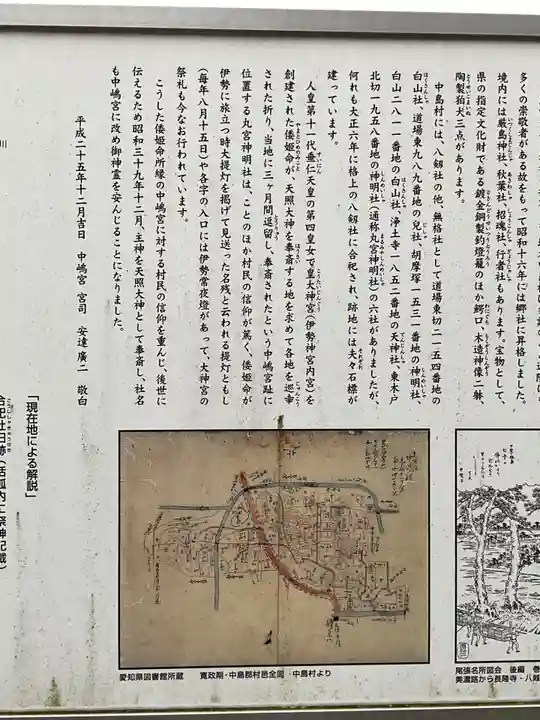 多くの崇敬者がある故をもつて昭和十六年には郷社に昇格しました。
境内には厳島神社、秋葉社、招魂社、行者社もあります。宝物として、
県の指定文化財である鍍金銅製釣燈籠のほか鰐口、木造神像二躰、
陶製狛犬三点があります。
中島村には八剱社の他、無格社として道場東切二一五四番地の
白山社、道場東九八九番地の兒社、胡摩塚一五三一番地の神明社、
白山二八一一番地の白山社、浄土寺一八五二番地の天神社、東木戸
北切一九五八番地の神明社(通称丸宮神明社)の六社がありましたが、
何れも大正六年に格上の八剱社に合祀され、跡地には夫々石標が
建っています。
人皇第十一代垂仁天皇の第四皇女で皇大神宮(伊勢神宮内宮)を
創建された倭姫命が、天照大神を奉斎する地を求めて各地を巡幸
された折り、当地に三ヶ月間逗留し、奉斎されたという中嶋宮趾に
位置する丸宮神明社は、ことのほか村民の信仰が篤く、倭姫命が
伊勢に旅立つ時大提灯を掲げて見送った名残と云われる提灯ともし
(毎年八月十五日)や各字の入口には伊勢常夜燈があって、大神宮の
祭礼も今なお行われています。
こうした倭姫命所縁の中嶋宮に対する村民の信仰を重んじ、後世に
伝えるため昭和三十九年十二月、主神を天照大神として奉斎し、社名
も中嶋宮に改め御神霊を安んじることになりました。
平成二十五年十二月吉日 中嶋宮 宮司 安達廣二 敬白
「現在地による解説」
合祀社旧跡(括弧内は祭神記載)
川
愛知県図書館所蔵 寛政期・中島郡村邑全図 中島村より
尾張名所図会 後編 巻
美濃路から長隆寺・八剱